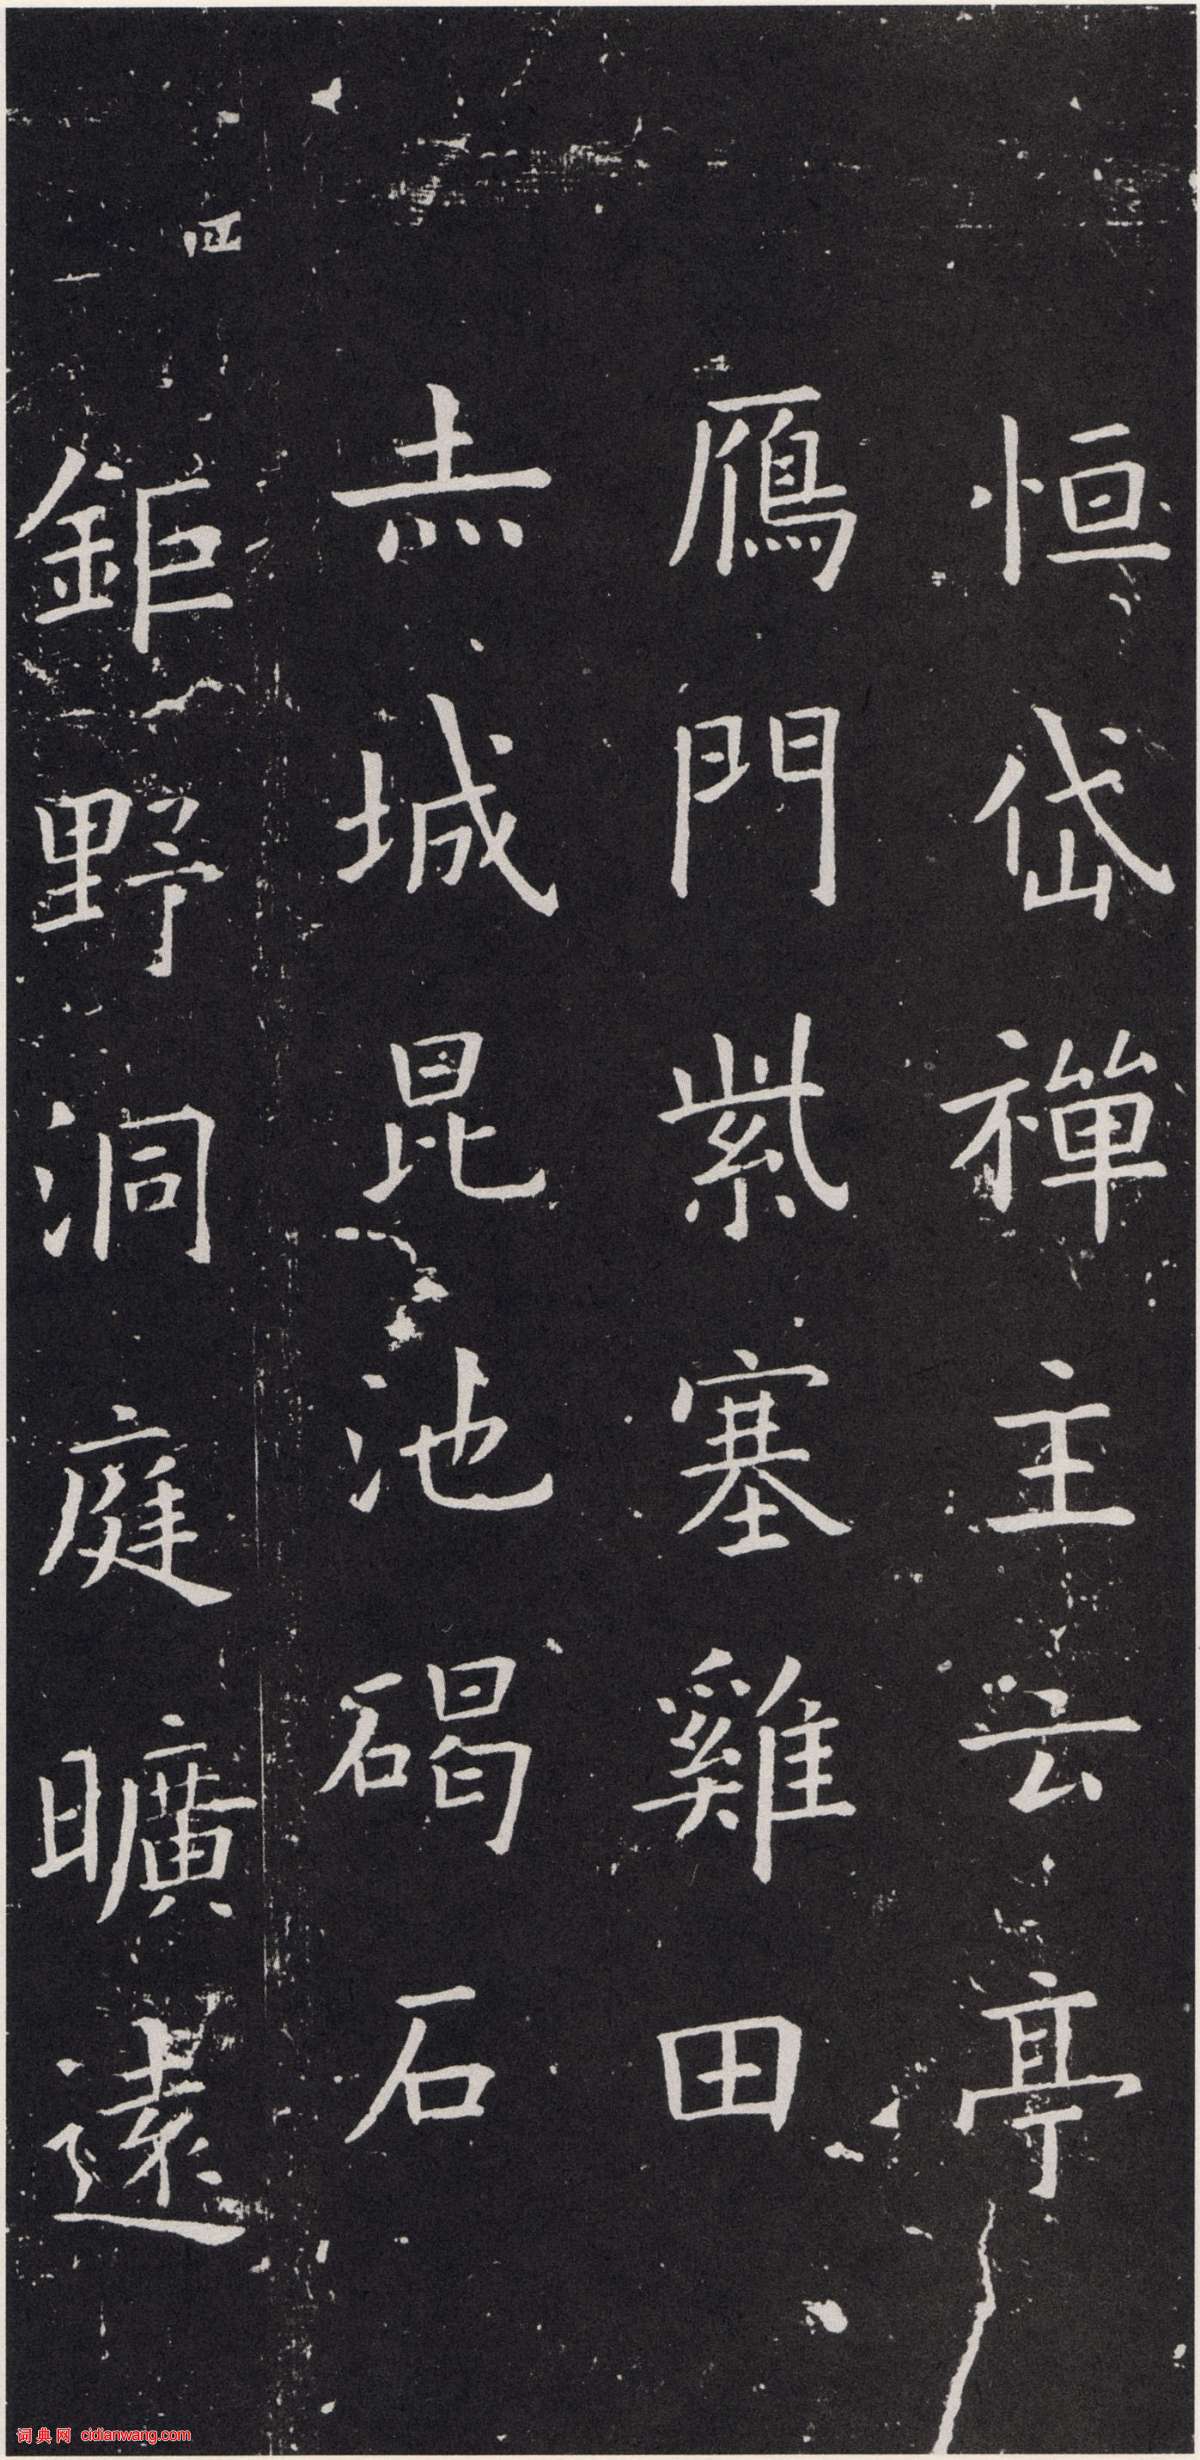 恒岱禪主云亭
鴈門紫塞雞田
赤城昆池碣石
鉅野洞庭曠遠
词典网 cidianwang.com